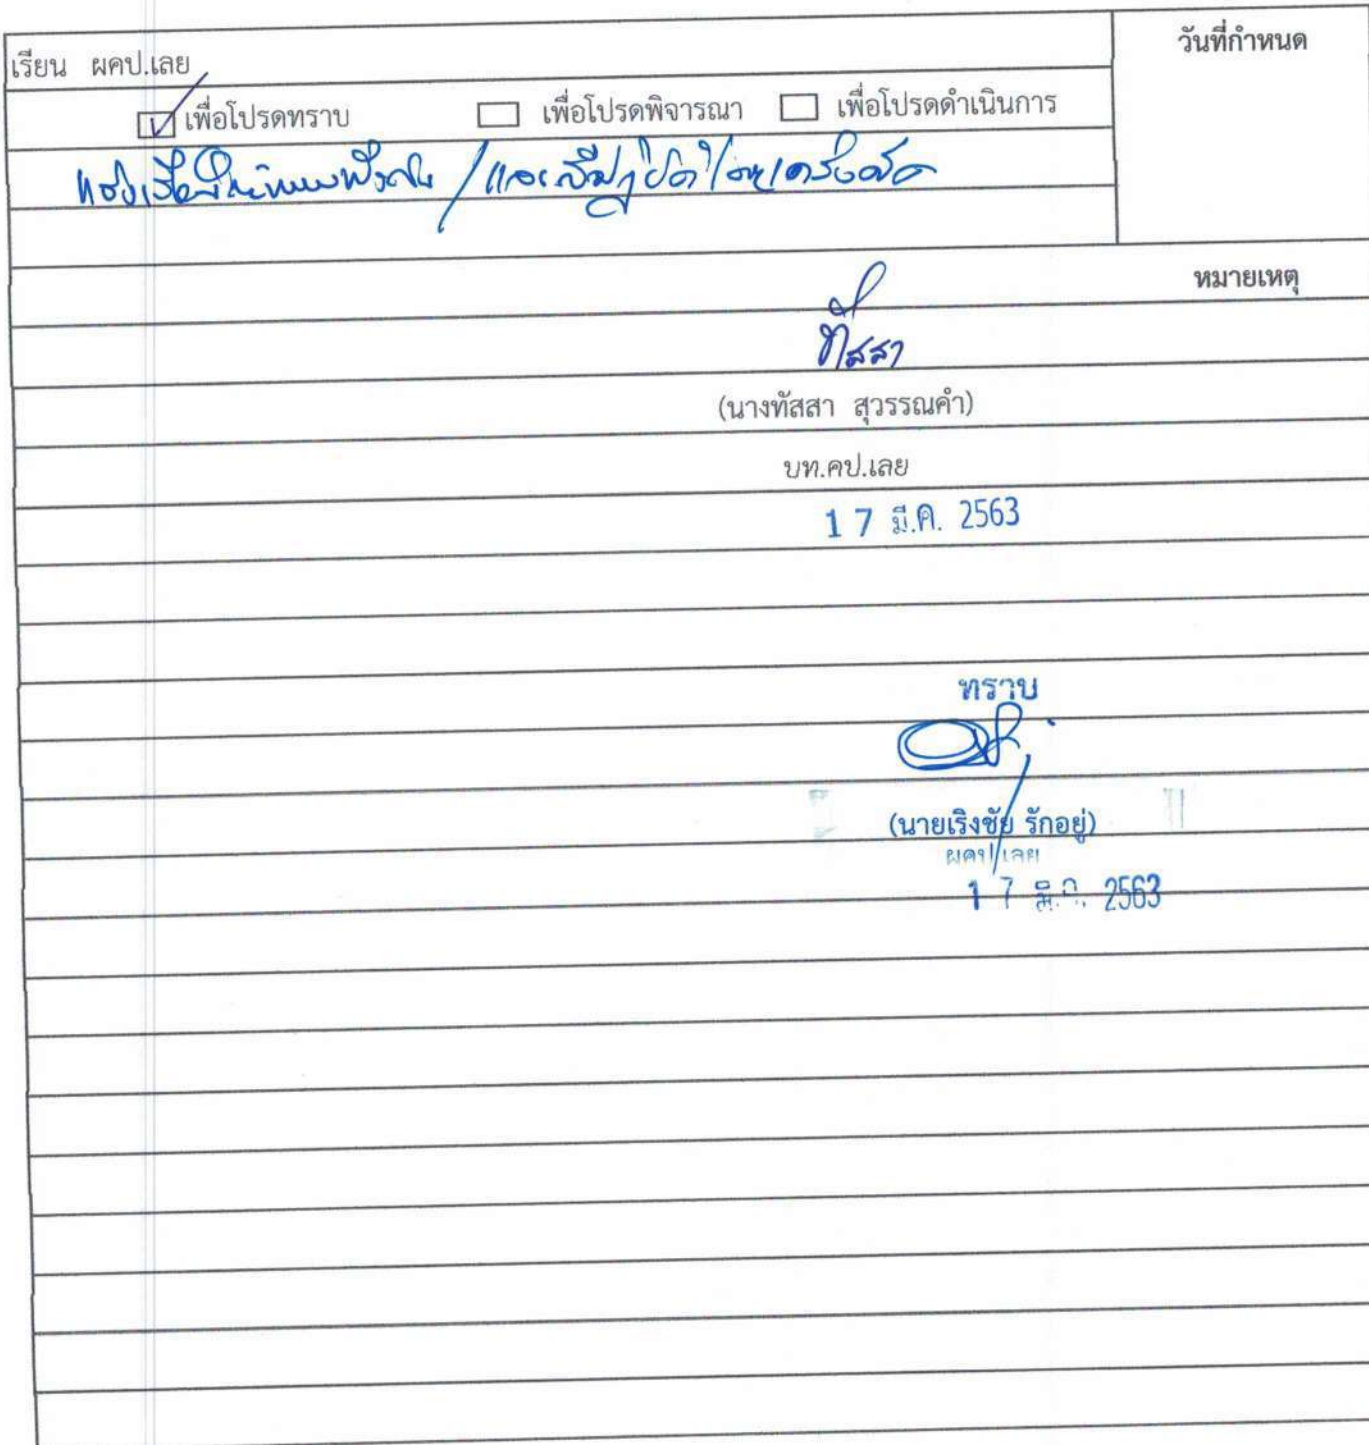 วันที่กำหนด
เรียน ผคป.เลย
เพื่อโปรดทราบ เพื่อโปรดพิจารณา เพื่อโปรดดำเนินการ
หมายเหตุ
ทัสสา
(นางทัสสา สุวรรณคำ)
บท.คป.เลย
17 มี.ค. 2563
ทราบ
(นายเริงชัย รักอยู่)
ผคป.เลย
17 มี.ค. 2563